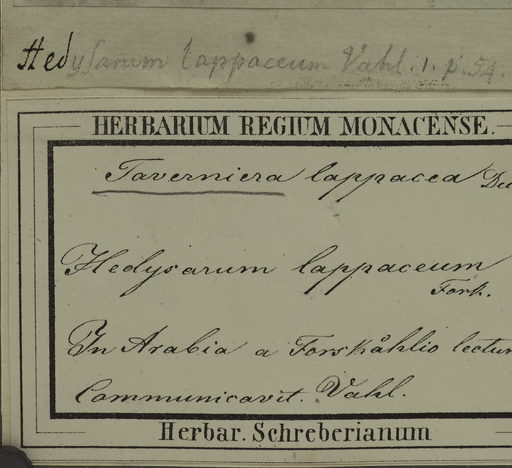 Hedysarum lappaceum Vahl. 1. p. 54.
HERBARIUM REGIUM MONACENSE.
Taverniera lappacea
Hedysarum lappaceum
Forsk.
In Arabia a Forskåhlio lectum
Communicavit. Vahl.
Herbar. Schreberianum